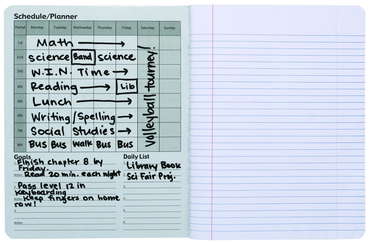 Schedule/Planner
Period Monday Tuesday Wednesday Thursday Friday Saturday Sunday
Math
science Band science
W.I.N. Time
Reading Lib
Lunch
Writing/Spelling
Social Studies
Bus Bus Walk Bus Bus
Volleyball tourney!
Goals
Finish chapter 8 by
Friday
Read 20 min. each night
Pass level 12 in
Keyboarding
Keep fingers on home
row!
Daily List
Library Book
Sci Fair Proj.